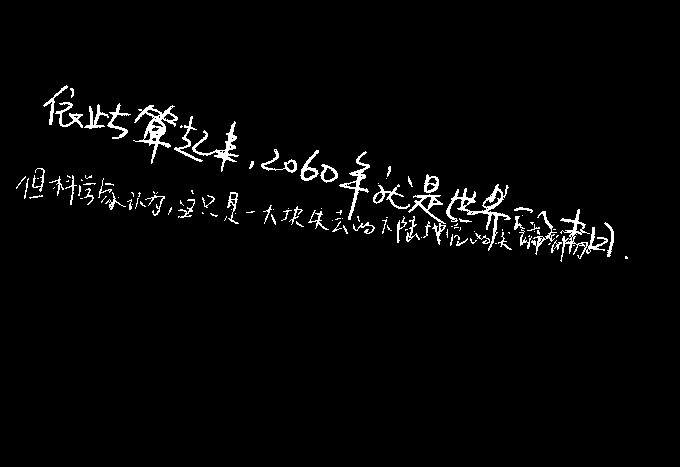 依此算起来,2060年就是世界的末日.
但科学家认为,这只是一大块失去的大陆